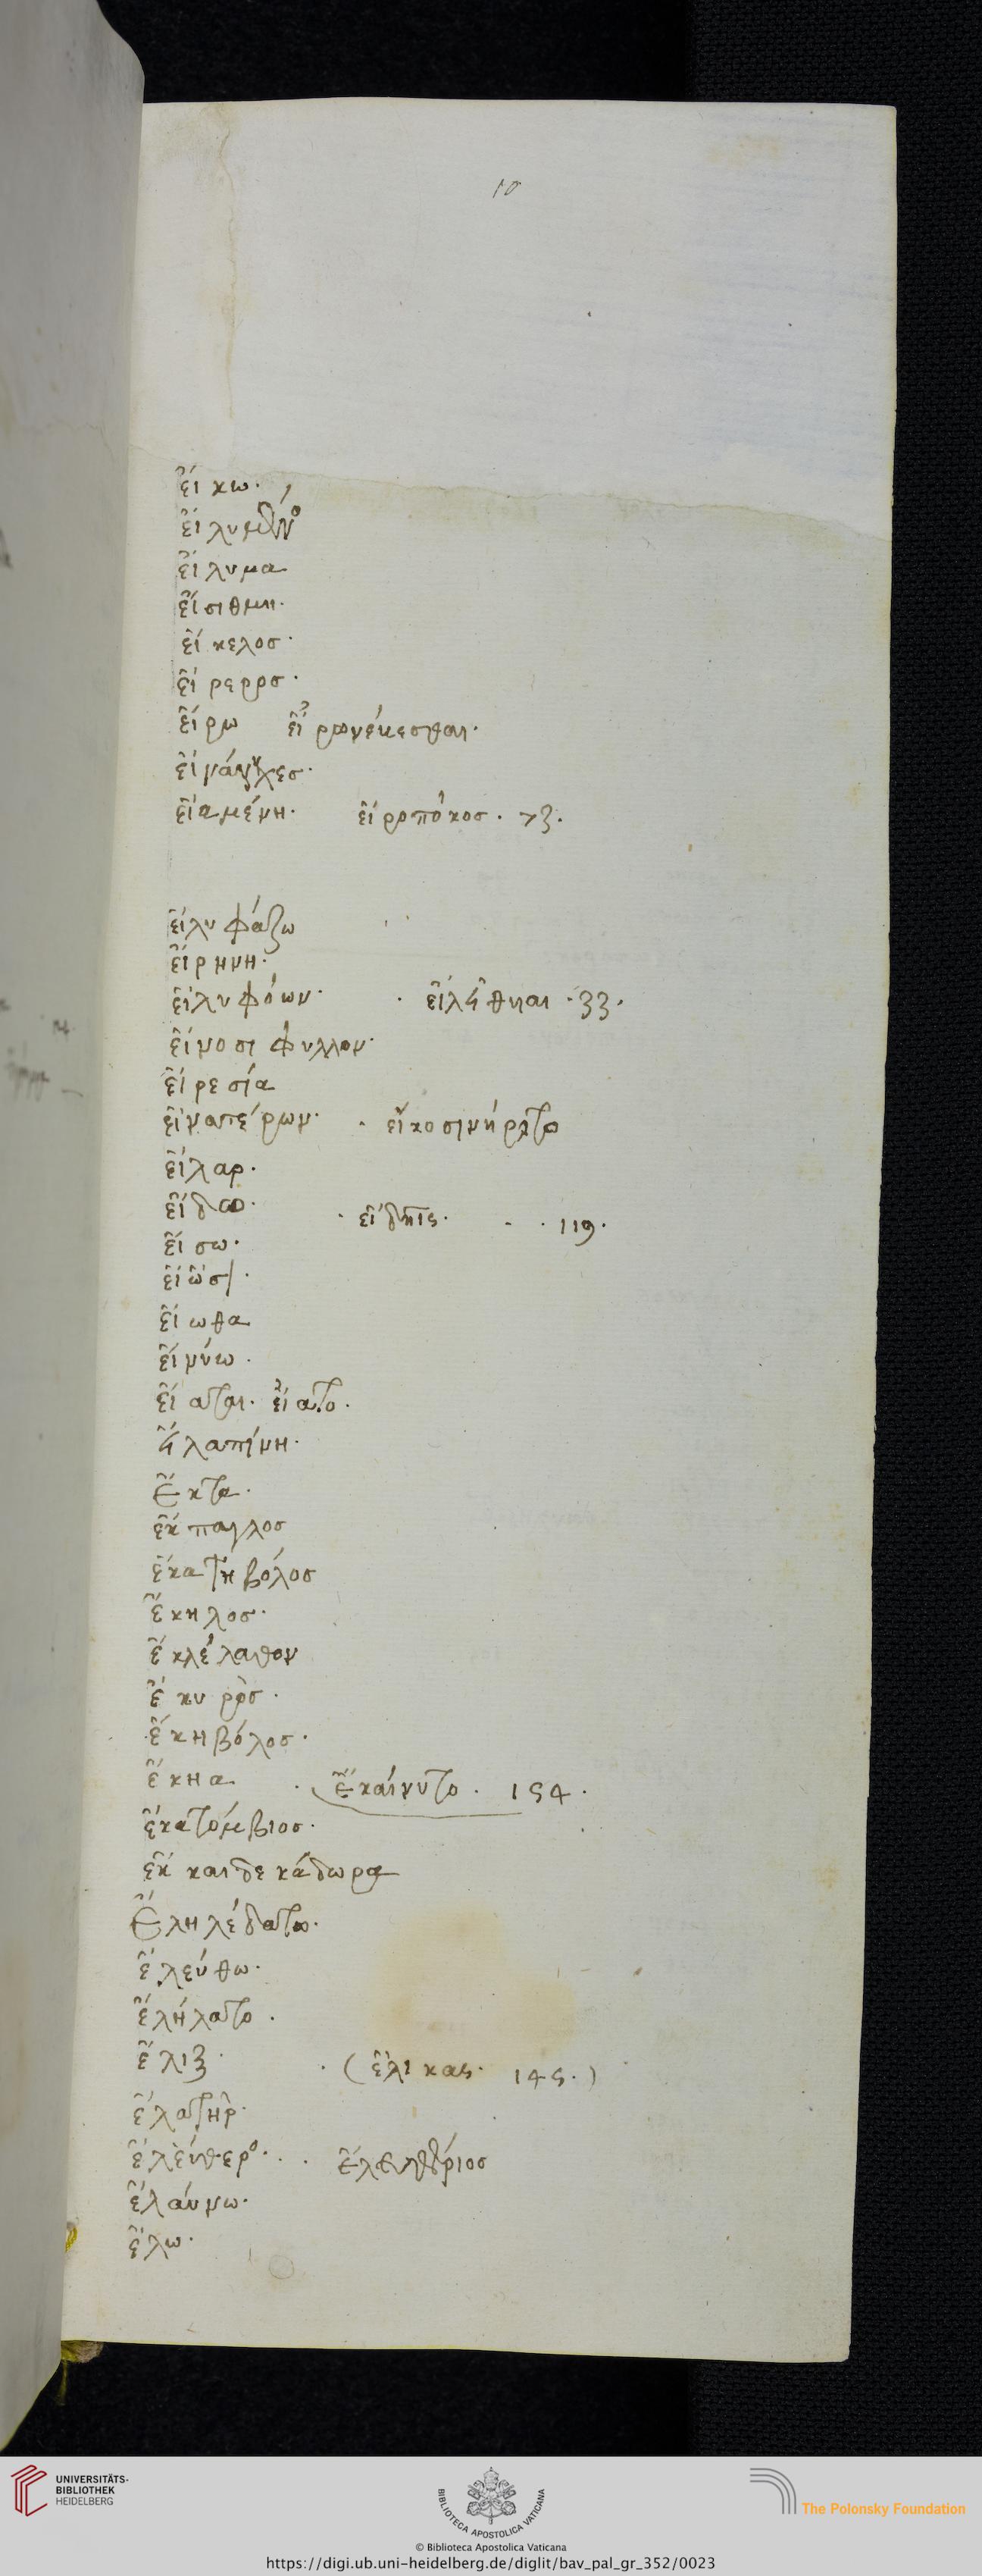 10
εἴκω.
εἰλυμένο
εἴλυμα
εἰσίθμη.
εἴκελοσ.
εἴρερροσ.
εἴρω εἴρωνέκεσθαι.
εἰνάνυχεσ.
εἱαμένη. εἰροπόκοσ. 73.
εἰλυφάζω
εἰρήνη.
εἰλυφόων. . εἰλήθηαι. 33.
εἰνοσίφυλλον.
εἰρεσία
εἰνατέρων. . εἰκοσινήριτα
εἶλαρ.
εἴδω.
. εἰδῆτς. . . 119.
εἴσω.
εἴωθα
εἰνύω.
εἵαται. εἵατο.
εἰλαπίνη.
Ἕκτα.
ἔκπαγλοσ
ἑκατηβόλοσ
ἕκηλοσ.
ἐκλέλαθον
ἑκυρὸσ.
ἑκηβόλοσ.
ἔκηα . Ἐκαίνυτο. 154.
ἑκατόμβιοσ.
ἑκκαιδεκάδωρα
Ἐληλέδατο.
ἐλεύθω.
ἐλήλατο.
ἕλιξ. . (ἕλικας. 145.)
ἐλατήρ.
ἐλεύθερο. . . ἐλευθέριοσ
ἐλαύνω.
ἕλω.
UNIVERSITÄTS-
BIBLIOTHEK
HEIDELBERG
BIBLIOTECA APOSTOLICA VATICANA
The Polonsky Foundation
© Biblioteca Apostolica Vaticana
https://digi.ub.uni-heidelberg.de/diglit/bav_pal_gr_352/0023